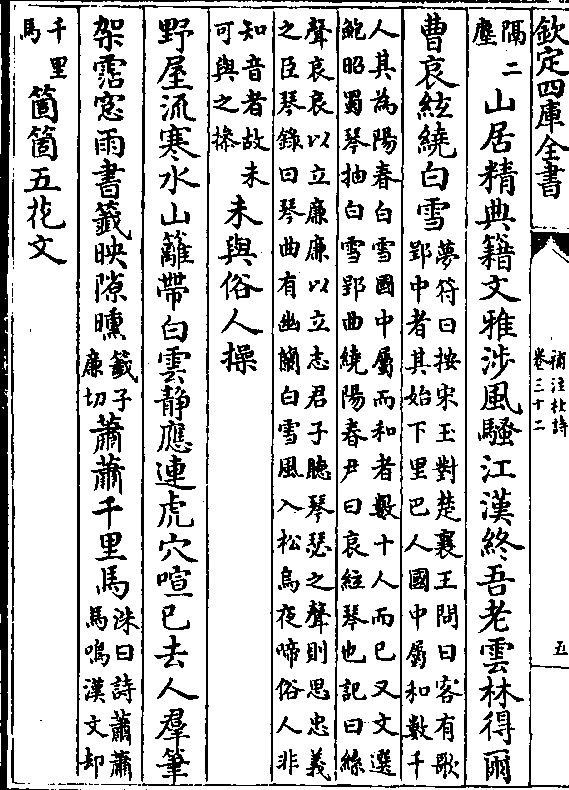 欽定四庫全書
補注杜詩
卷三十二
五
隔二
塵
山居精典籍文雅涉風騷江漢終吾老雲林得爾
曹哀絃繞白雪
夢符曰按宋玉對楚襄王問曰客有歌
郢中者其始下里巴人國中屬和數千
人其為陽春白雪國中屬而和者數十人而已又文選
鮑昭蜀琴抽白雪郢曲繞陽春尹曰哀絃琴也記曰絲
聲哀哀以立廉廉以立志君子聽琴瑟之聲則思忠義
之臣琴錄曰琴曲有幽蘭白雪風入松烏夜啼俗人非
知音者故未
可與之操
未與俗人操
野屋流寒水山籬帶白雲靜應連虎穴喧已去人羣筆
架霑窓雨書籤映隙曛
籤子
廉切
蕭蕭千里馬
洙曰詩蕭蕭
馬鳴漢文却
千里
馬
箇箇五花文